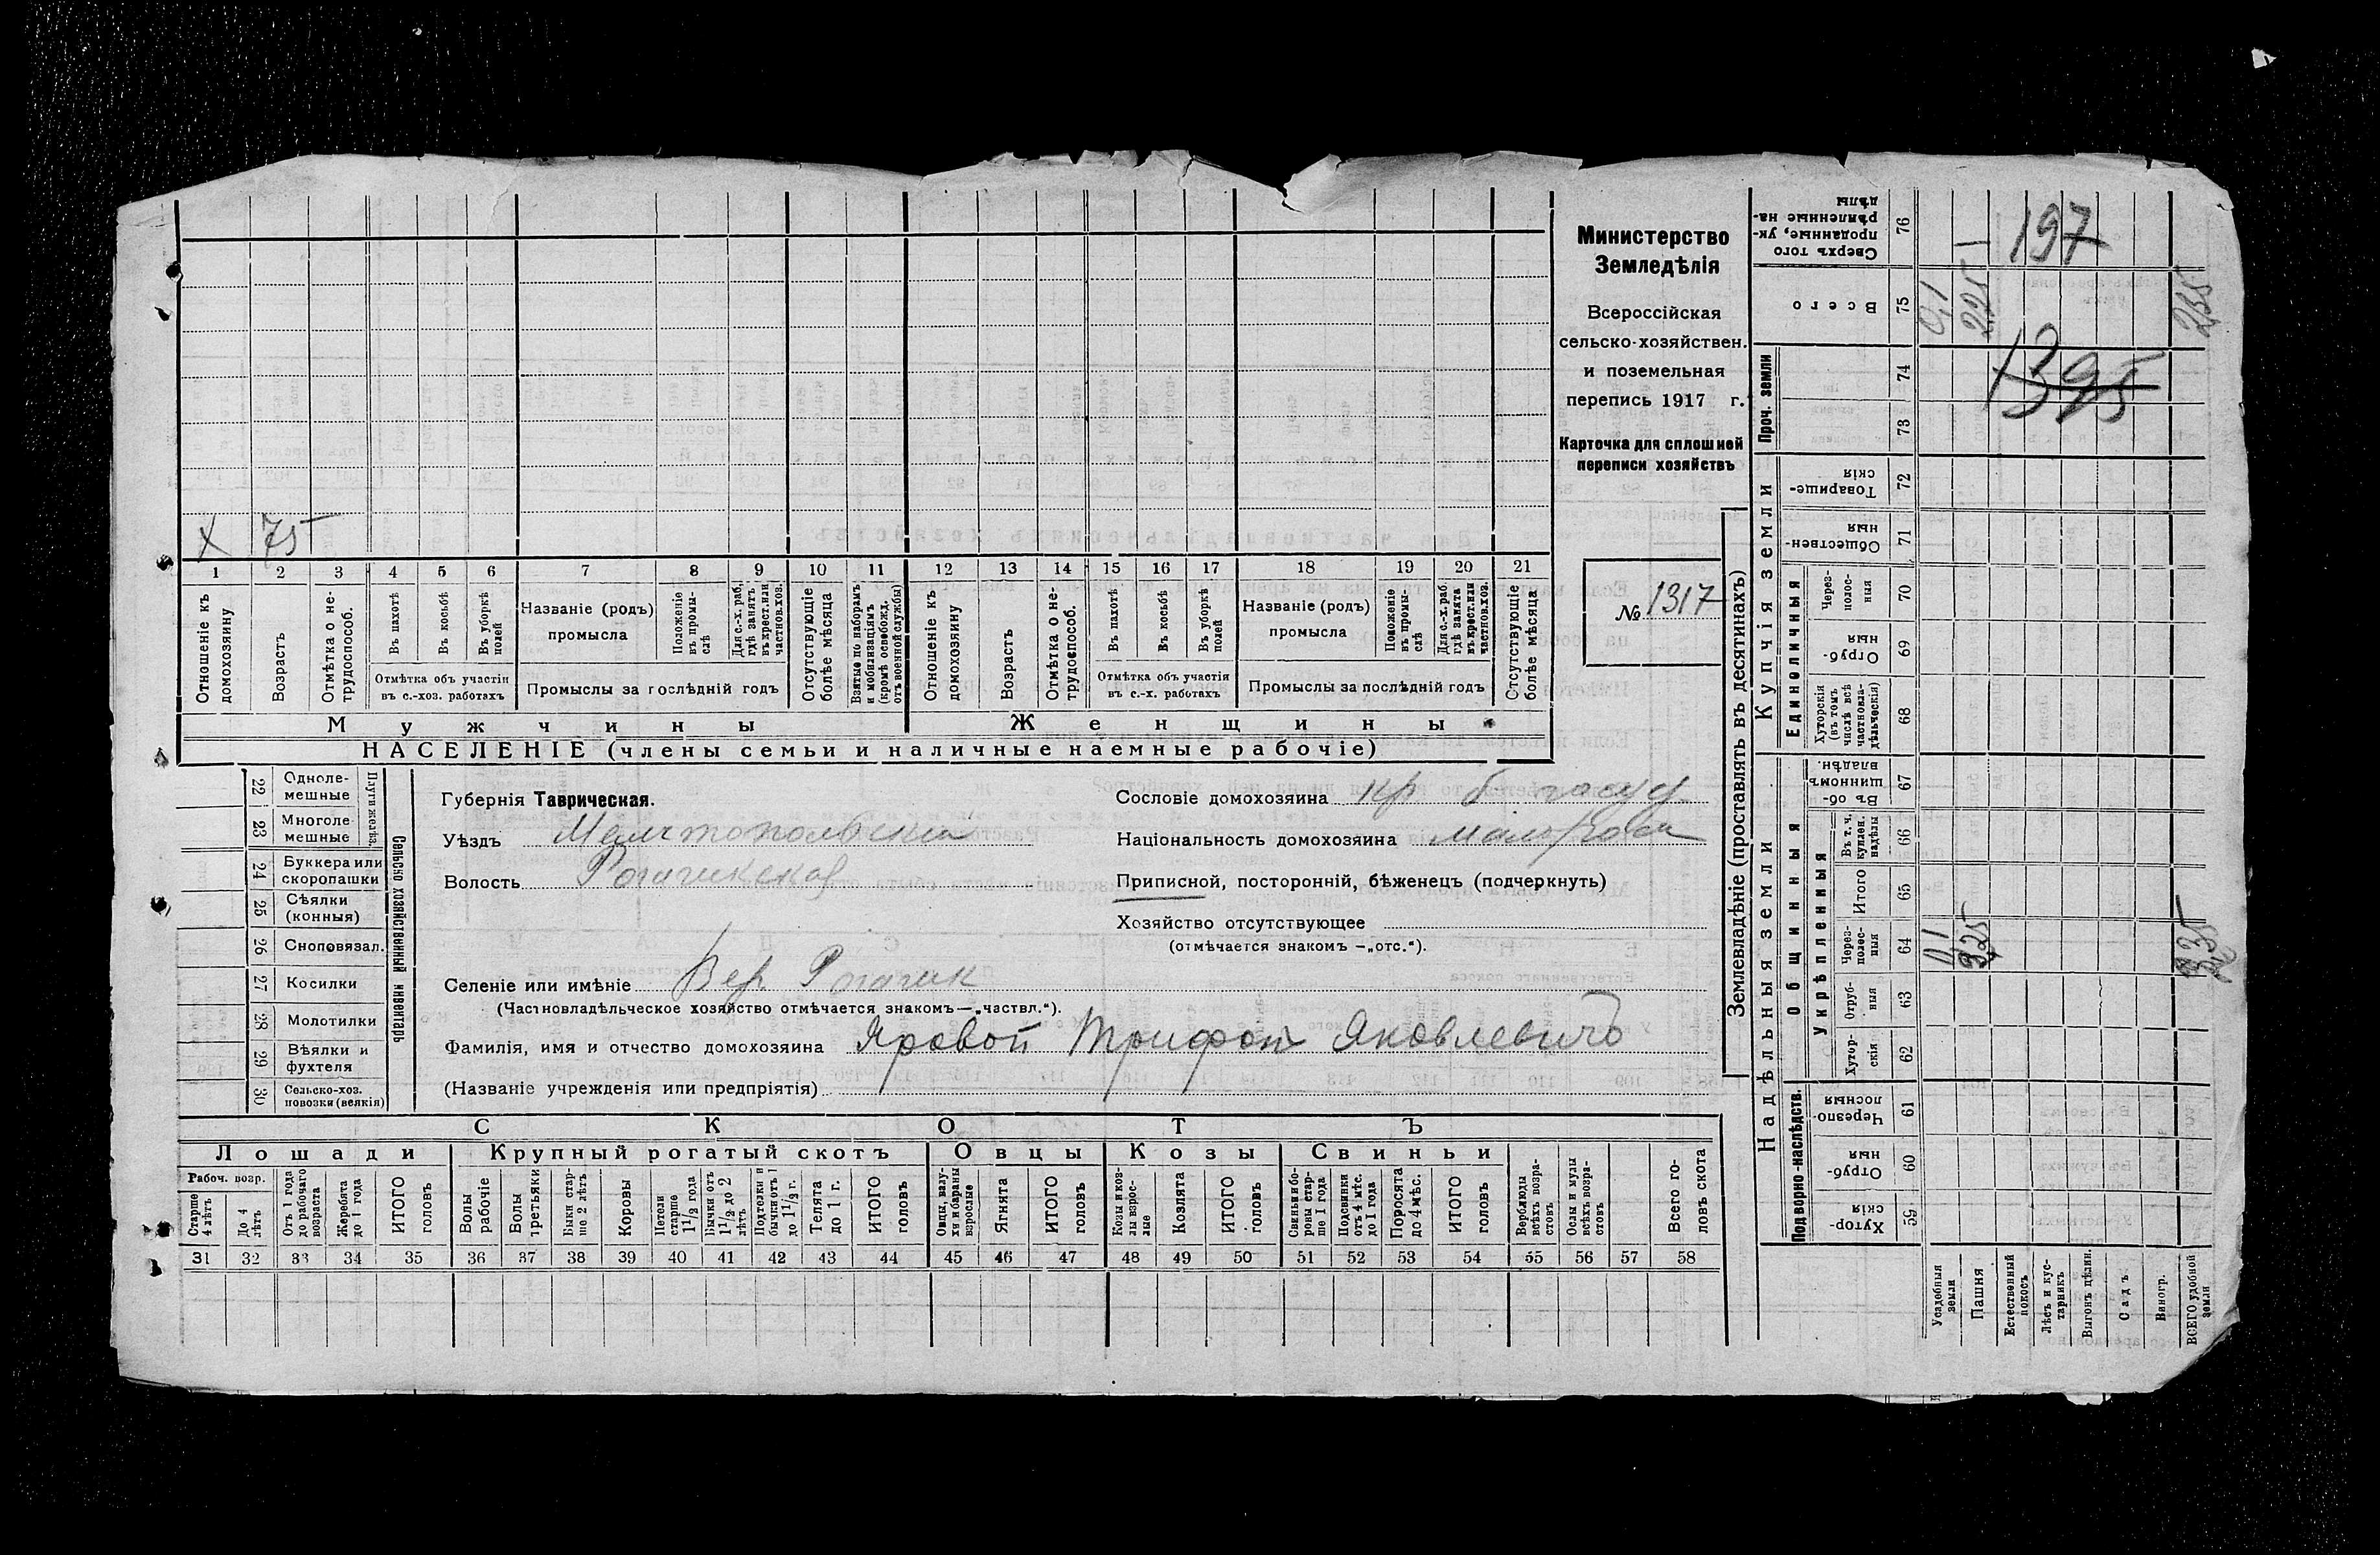 Министерство
Земледѣлія
Всероссійская
сельско-хозяйствен.
и поземельная
перепись 1917 г.
Карточка для сплошной
переписи хозяйствъ
№ 1317
X 75
1 2 3 4 5 6 7 8 9 10 11 12 13 14 15 16 17 18 19 20 21
Отношеніе къ домохозяину
Возрастъ
Отмѣтка о не-трудоспособ.
Въ пахотѣ
Въ косьбѣ
Въ уборкѣ полей
Отмѣтка объ участіи
въ с.-хоз. работахъ
Названіе (родъ)
промысла
Положеніе въ промы-слѣ
Для с.-х. раб. гдѣ занятъ въ крест. или частнов. хоз.
Промыслы за послѣдній годъ
Отсутствующіе болѣе мѣсяца
Взятые по наборамъ и мобилизаціямъ (кромѣ освобожд. отъ военной службы)
Отношеніе къ домохозяину
Возрастъ
Отмѣтка о не-трудоспособ.
Въ пахотѣ
Въ косьбѣ
Въ уборкѣ полей
Отмѣтка объ участія
въ с.-х. работахъ
Названіе (родъ)
промысла
Положеніе въ промы-слѣ
Для с.-х. раб. гдѣ занята въ крест. или частнов. хоз.
Промыслы за послѣдній годъ
Отсутствующіе болѣе мѣсяца
Мужчины Женщины
НАСЕЛЕНІЕ (члены семьи и наличные наемные рабочіе)
Сельско хозяйственный инвентарь
Плуги желѣз.
22 Одноле-мешные
23 Многоле-мешные
24 Буккера или скоропашки
25 Сѣялки (конныя)
26 Сноповязал.
27 Косилки
28 Молотилки
29 Вѣялки и фухтеля
30 Сельско-хоз. повозки (всякія)
Губернія Таврическая.
Уѣздъ Мелитопольскій
Волость Рогачикская
Селеніе или имѣніе Вер Рогачик
(Частновладѣльческое хозяйство отмѣчается знакомъ—„частвл.“).
Фамилія, имя и отчество домохозяина Яровой Трифон Яковлевичъ
(Названіе учрежденія или предпріятія)
Сословіе домохозяина кр б
Національность домохозяина малоросс
Приписной, посторонній, бѣженецъ (подчеркнуть)
Хозяйство отсутствующее
(отмѣчается знакомъ —„отс.“).
СКОТЪ
Лошади Крупный рогатый скотъ Овцы Козы Свиньи
Рабоч. возр.
Старше 4 лѣтъ
До 4 лѣтъ
Отъ 1 года до рабочаго возраста
Жеребята до 1 года
ИТОГО головъ
Волы рабочіе
Волы третьяки
Быки стар-ше 2 лѣтъ
Коровы
Нетели старше 1 1/2 года
Бычки отъ 1 1/2 до 2 лѣтъ
Подтелки и бычки отъ 1 до 1 1/2 г.
Телята до 1 г.
ИТОГО головъ
Овцы, валу-хи и бараны взрослые
Ягнята
ИТОГО головъ
Козы и коз-лы взрос-лые
Козлята
ИТОГО головъ
Свиньи и бо-ровы стар-ше 1 года
Подсвинки отъ 4 мѣс. до 1 года
Поросята до 4 мѣс.
ИТОГО головъ
Верблюды всѣхъ возра-стовъ
Ослы и мулы всѣхъ возра-стовъ
Всего го-ловъ скота
31 32 33 34 35 36 37 38 39 40 41 42 43 44 45 46 47 48 49 50 51 52 53 54 55 56 57 58
Землевладѣніе (проставлять въ десятинахъ)
Надѣльныя земли Купчія земли Проч. земли
Подворно-наслѣдств.
Общинныя
Укрѣпленныя
Единоличныя
59 Хутор-скія
60 Отруб-ныя
61 Черезпо-лосныя
62 Хутор-скія
63 Отруб-ныя
64 Через-полос-ныя
65 Итого
66 Въ т. ч. куплен. надѣлы
67 Въ об-щинномъ владѣн.
68 Хуторскія (въ томъ числѣ всѣ частновла-дѣльческія)
69 Отруб-ныя
70 Через-полос-ныя
71 Обществен-ныя
72 Товарище-скія
73
74
75 Всего
76 Сверхъ того проданные, ук-рѣпленные на-дѣлы
Усадебныя земли
Пашня
Естественный покосъ
Лѣсъ и кус-тарникъ
Выгонъ цѣлин.
Садъ
Виногр.
ВСЕГО удобной земли
0,1
225
235
197
1395
0,1